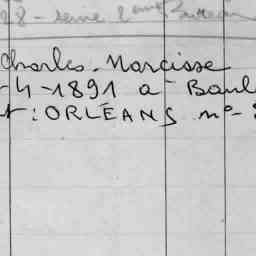 28 - 2ème
Charles-Narcisse
-4-1891 à Baul
t : ORLÉANS n°-